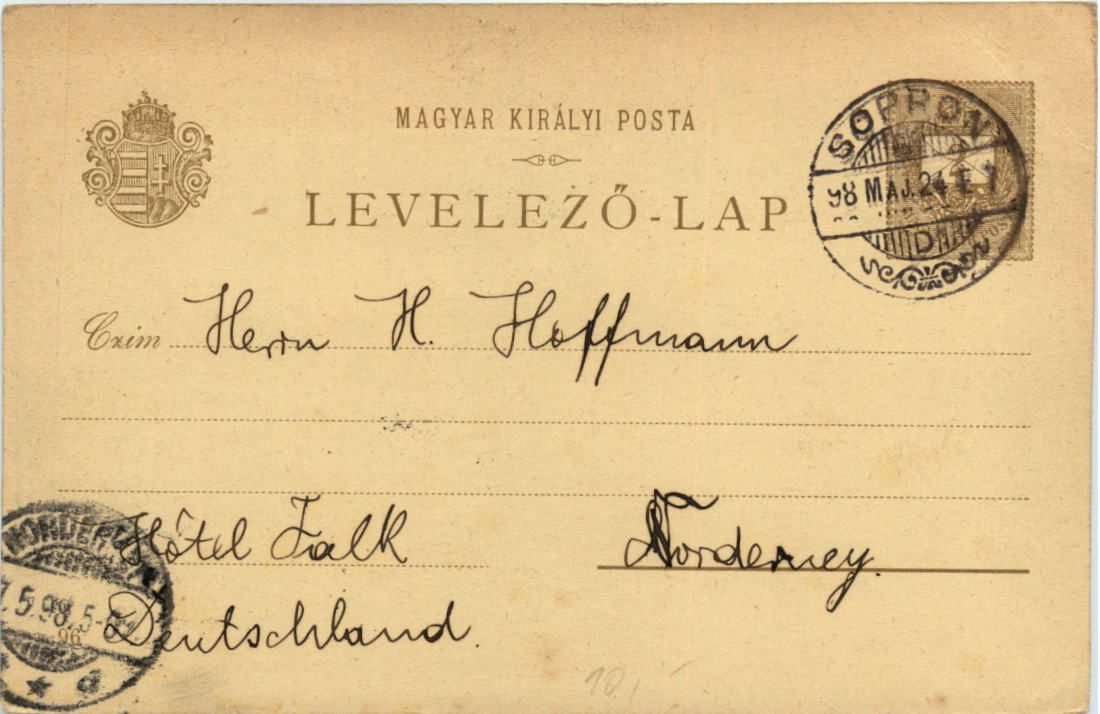 MAGYAR KIRÁLYI POSTA
LEVELEZŐ-LAP
SOPRON
98 MAJ. 24 E 7
D
Czim Herrn H. Hoffmann
Hôtel Falk Norderney.
Deutschland.
NORDERNEY
.5.98.5-
96
* d
10,